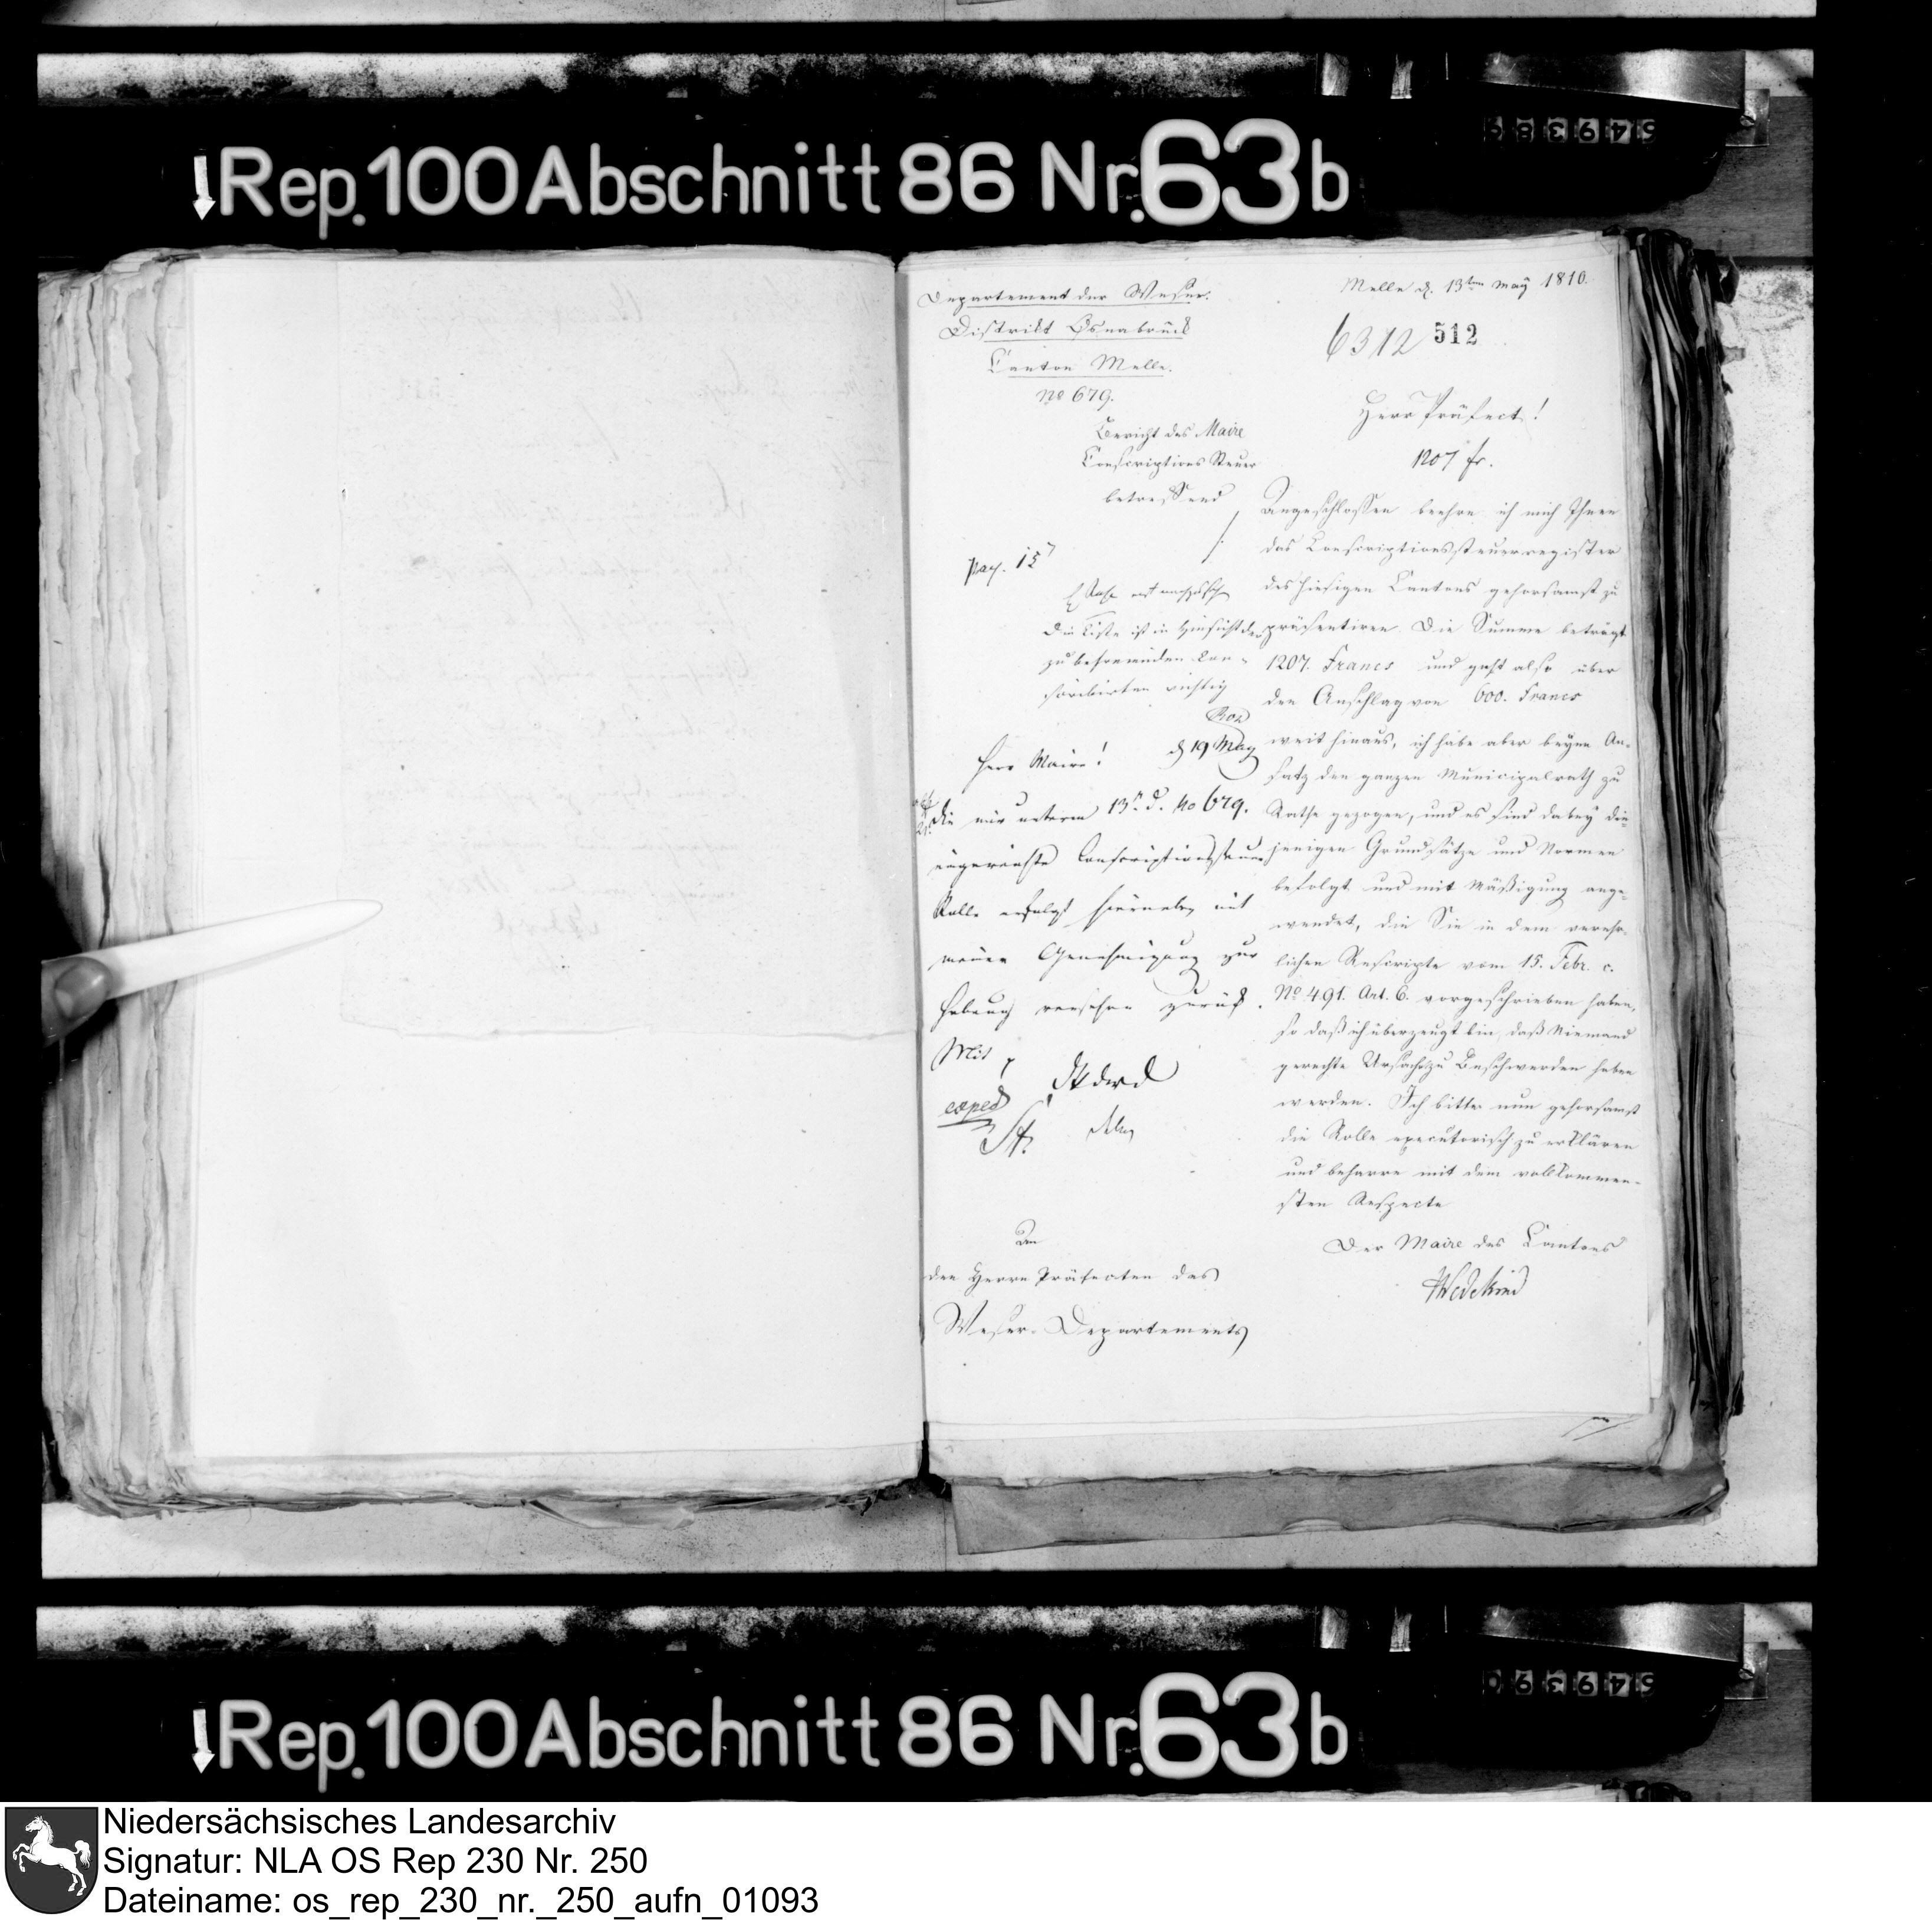 Rep. 100 Abschnitt 86 Nr. 63 b
Departement der Weser.
Distrikt Osnabrück
Canton Melle.
No 679.
Bericht des Maire
Conscriptions Steuer
betreffend
Melle d. 13ten May 1810.
6312 512
Herr Präfect!
1207 fr.
Angeschlossen beehre ich mich Ihnen
das Conscriptionssteuerregister
des hiesigen Cantons gehorsamst zu
präsentiren. Die Summe beträgt
1207. Francs und geht also über
den Anschlag von 600. Francs
weit hinaus, ich habe aber beym An-
satz den ganzen Municipalrath zu
Rathe gezogen, und es sind dabey die-
jenigen Grundsätze und Normen
befolgt und mit Mäßigung ange-
wendet, die Sie in dem verehr-
lichen Rescripte vom 15. Febr. c.
No 491. Art. 6. vorgeschrieben haben,
so daß ich überzeugt bin, daß Niemand
gerechte Ursache zu Beschwerden haben
werden. Ich bitte nun gehorsamst
die Rolle executorisch zu erklären
und beharre mit dem vollkommen-
sten Respecte
Der Maire des Cantons
Wedekind
pag. 15
Die Liste ist in Hinsicht der
zu befreienden Con-
scribirten richtig
d 19 May
Herr Maire!
Die mir unterm 13. d. No 679.
eingereichte Conscriptionssteuer
Rolle erfolgt hierneben mit
meiner Genehmigung zur
Hebung versehen zurück.
Mit
exped
St.
An
den Herrn Präfecten des
Weser-Departements
Rep. 100 Abschnitt 86 Nr. 63 b
Niedersächsisches Landesarchiv
Signatur: NLA OS Rep 230 Nr. 250
Dateiname: os_rep_230_nr._250_aufn_01093